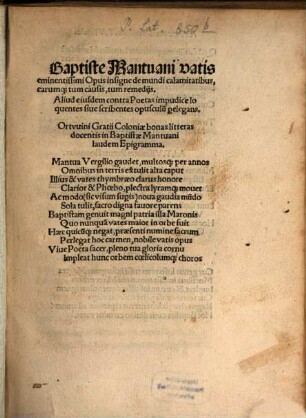 P. Lat. 858 b
Baptiste Mantuani vatis
eminentissimi Opus insigne de mundi calamitatibus,
earumq; tum causis, tum remedijs.
Aliud eiusdem contra Poetas impudice lo
quentes siue scribentes opusculũ pelegans.
Ortvuini Gratii Coloniæ bonas litteras
docentis in Baptistæ Mantuani
laudem Epigramma.
Mantua Vergilio gaudet, multosq; per annos
Omnibus in terris extulit alta caput
Illius & vates thymbræo clarus honore
Clarior & Phœbo, plectra lyramq; mouet
Ac modo (sic visum supis) noua gaudia mũdo
Sola tulit, sacro digna fauore parens
Baptistam genuit magni patria illa Maronis
Quo nunquã vates maior in orbe fuit
Hæc quiescq; negat, præsenti numine sacrum
Perlegat hoc carmen, nobile vatis opus
Viue Poeta sacer, pleno tua gloria cornu
Impleat hunc orbem cœlicolumq; choros